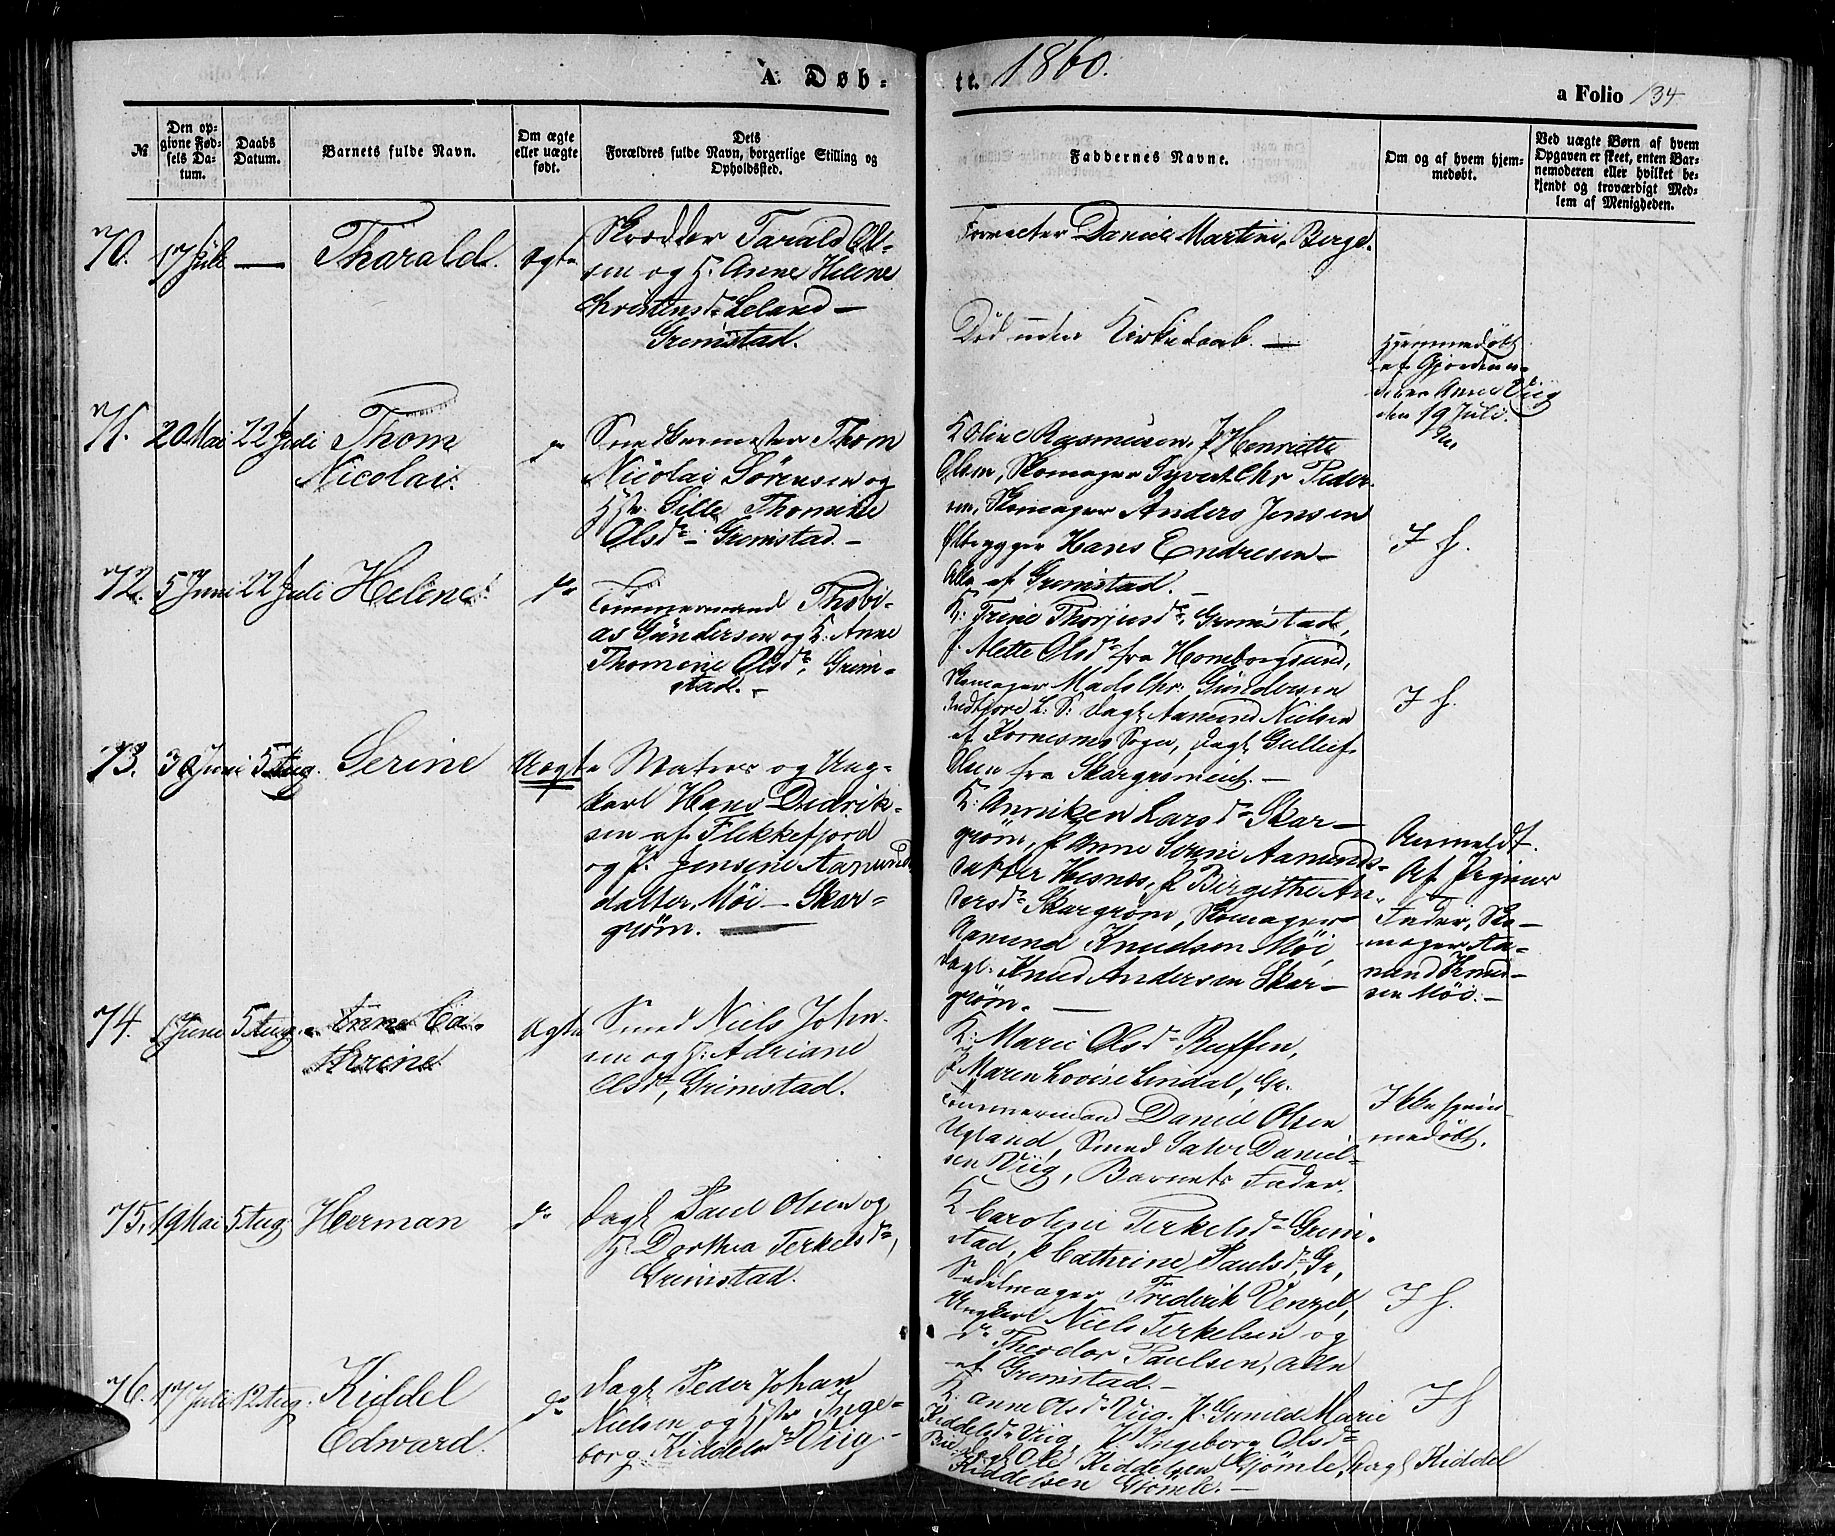 A. Døb-
te. 1860.
a Folio 134
№
Den op-
givne Fød-
sels Da-
tum.
Daabs
Datum.
Barnets fulde Navn.
Om ægte
eller uægte
født.
Dets
Forældres fulde Navn, borgerlige Stilling og
Opholdssted.
Faddernes Navne.
Om og af hvem hjem-
medøbt.
Ved uægte Børn af hvem
Opgaven er skeet, enten Bar-
nemoderen eller hvilket be-
kjendt og troværdigt Med-
lem af Menigheden.
70. 17 Juli — Tharald. Ægte
Skrædder Tarald Ol-
sen og H. Anne Helene
Christensd. Leland —
Grimstad.
Forvalter Daniel Martini Berge.
Død uden Kirkedaab. —
Hjemmedøbt
af Gjordemo-
deren Anne Viig
den 19 Juli.
71. 20 Mai 22 Juli Thom
Nicolai. do
Snedkermester Thom
Nicolai Sørensen og
Hstr. Sille Thomine
Olsdr. Grimstad. —
K. Oline Rasmusen, P. Henriette
Olsen, Skomager Syvert Chr. Peder-
sen, Skomager Anders Jensen
Hans Endresen —
Alle af Grimstad. —
I H.
72. 5 Juni 22 Juli Helene. do
Tømmermand Thobi-
as Gundersen og K. Anne
Thomine Olsdr. Grim-
stad. —
K: Trine Thorjusdr. Grimstad,
P. Alette Olsdr fra Homborgsund,
Skomager Mads Chr. Gundersen
L. S. Dagl. Aanund Nielsen
af Sogn, Dagl. Gullief
Olsen fra Skargrømeiet. —
I H.
73. 30 Juni 5 Aug. Serine Uægte
Matros og Ung-
karl Hans Didrik-
sen af Flekkefjord
og P. Jensine Aanunds-
datter Møi — Skar-
grøm. —
K. Anniken Larsdr Skar-
grøm, P. Anne Serine Aanunds-
datter Hesnes, P. Birgithe An-
dersdr Skargrøm, Skomager
Aanund Knudsen Møi,
Dagl. Knud Andersen Skar-
grøm. —
Anmeldt
Af Pigens
Fader, Sko-
mager Aa-
nund Knud-
sen Møi. —
74. Juni 5 Aug. Anne Ca-
thrine Ægte
Smed Niels John-
sen og H. Adriane
Olsdr, Grimstad.
K. Marie Olsdr Ruffen,
P. Maren Lovise Lindal, Gr.
Tømmermand Daniel Olsen
Ugland, Smed Salve Daniel-
sen Viig, Barnets Fader.
Ikke hjem-
medøbt.
75. 19 Mai 5 Aug. Herman do
Dagl. Paul Olsen og
H. Dorthea Terkelsdr,
Grimstad.
K Caroline Terkelsdr Grim-
stad, P. Cathrine Paulsdr, Gr,
Sadelmager Frederik Venzel,
Ungkarl Niels Terkelsen og
do Theodor Paulsen, alle
af Grimstad. —
I H.
76. 17 Juli 12 Aug. Kiddel
Edward. do
Dagl. Peder Johan
Nielsen og Hstr. Inge-
borg Kiddelsdr Viig. —
K. Anne Olsdr Viig, P. Gunilde Marie
Kiddelsdr Viig, P. Ingeborg Olsdr
Bie, Dagl. Ole Kiddelsen Gjømle, Dagl. Kiddel
Kiddelsen Gjømle. —
I H